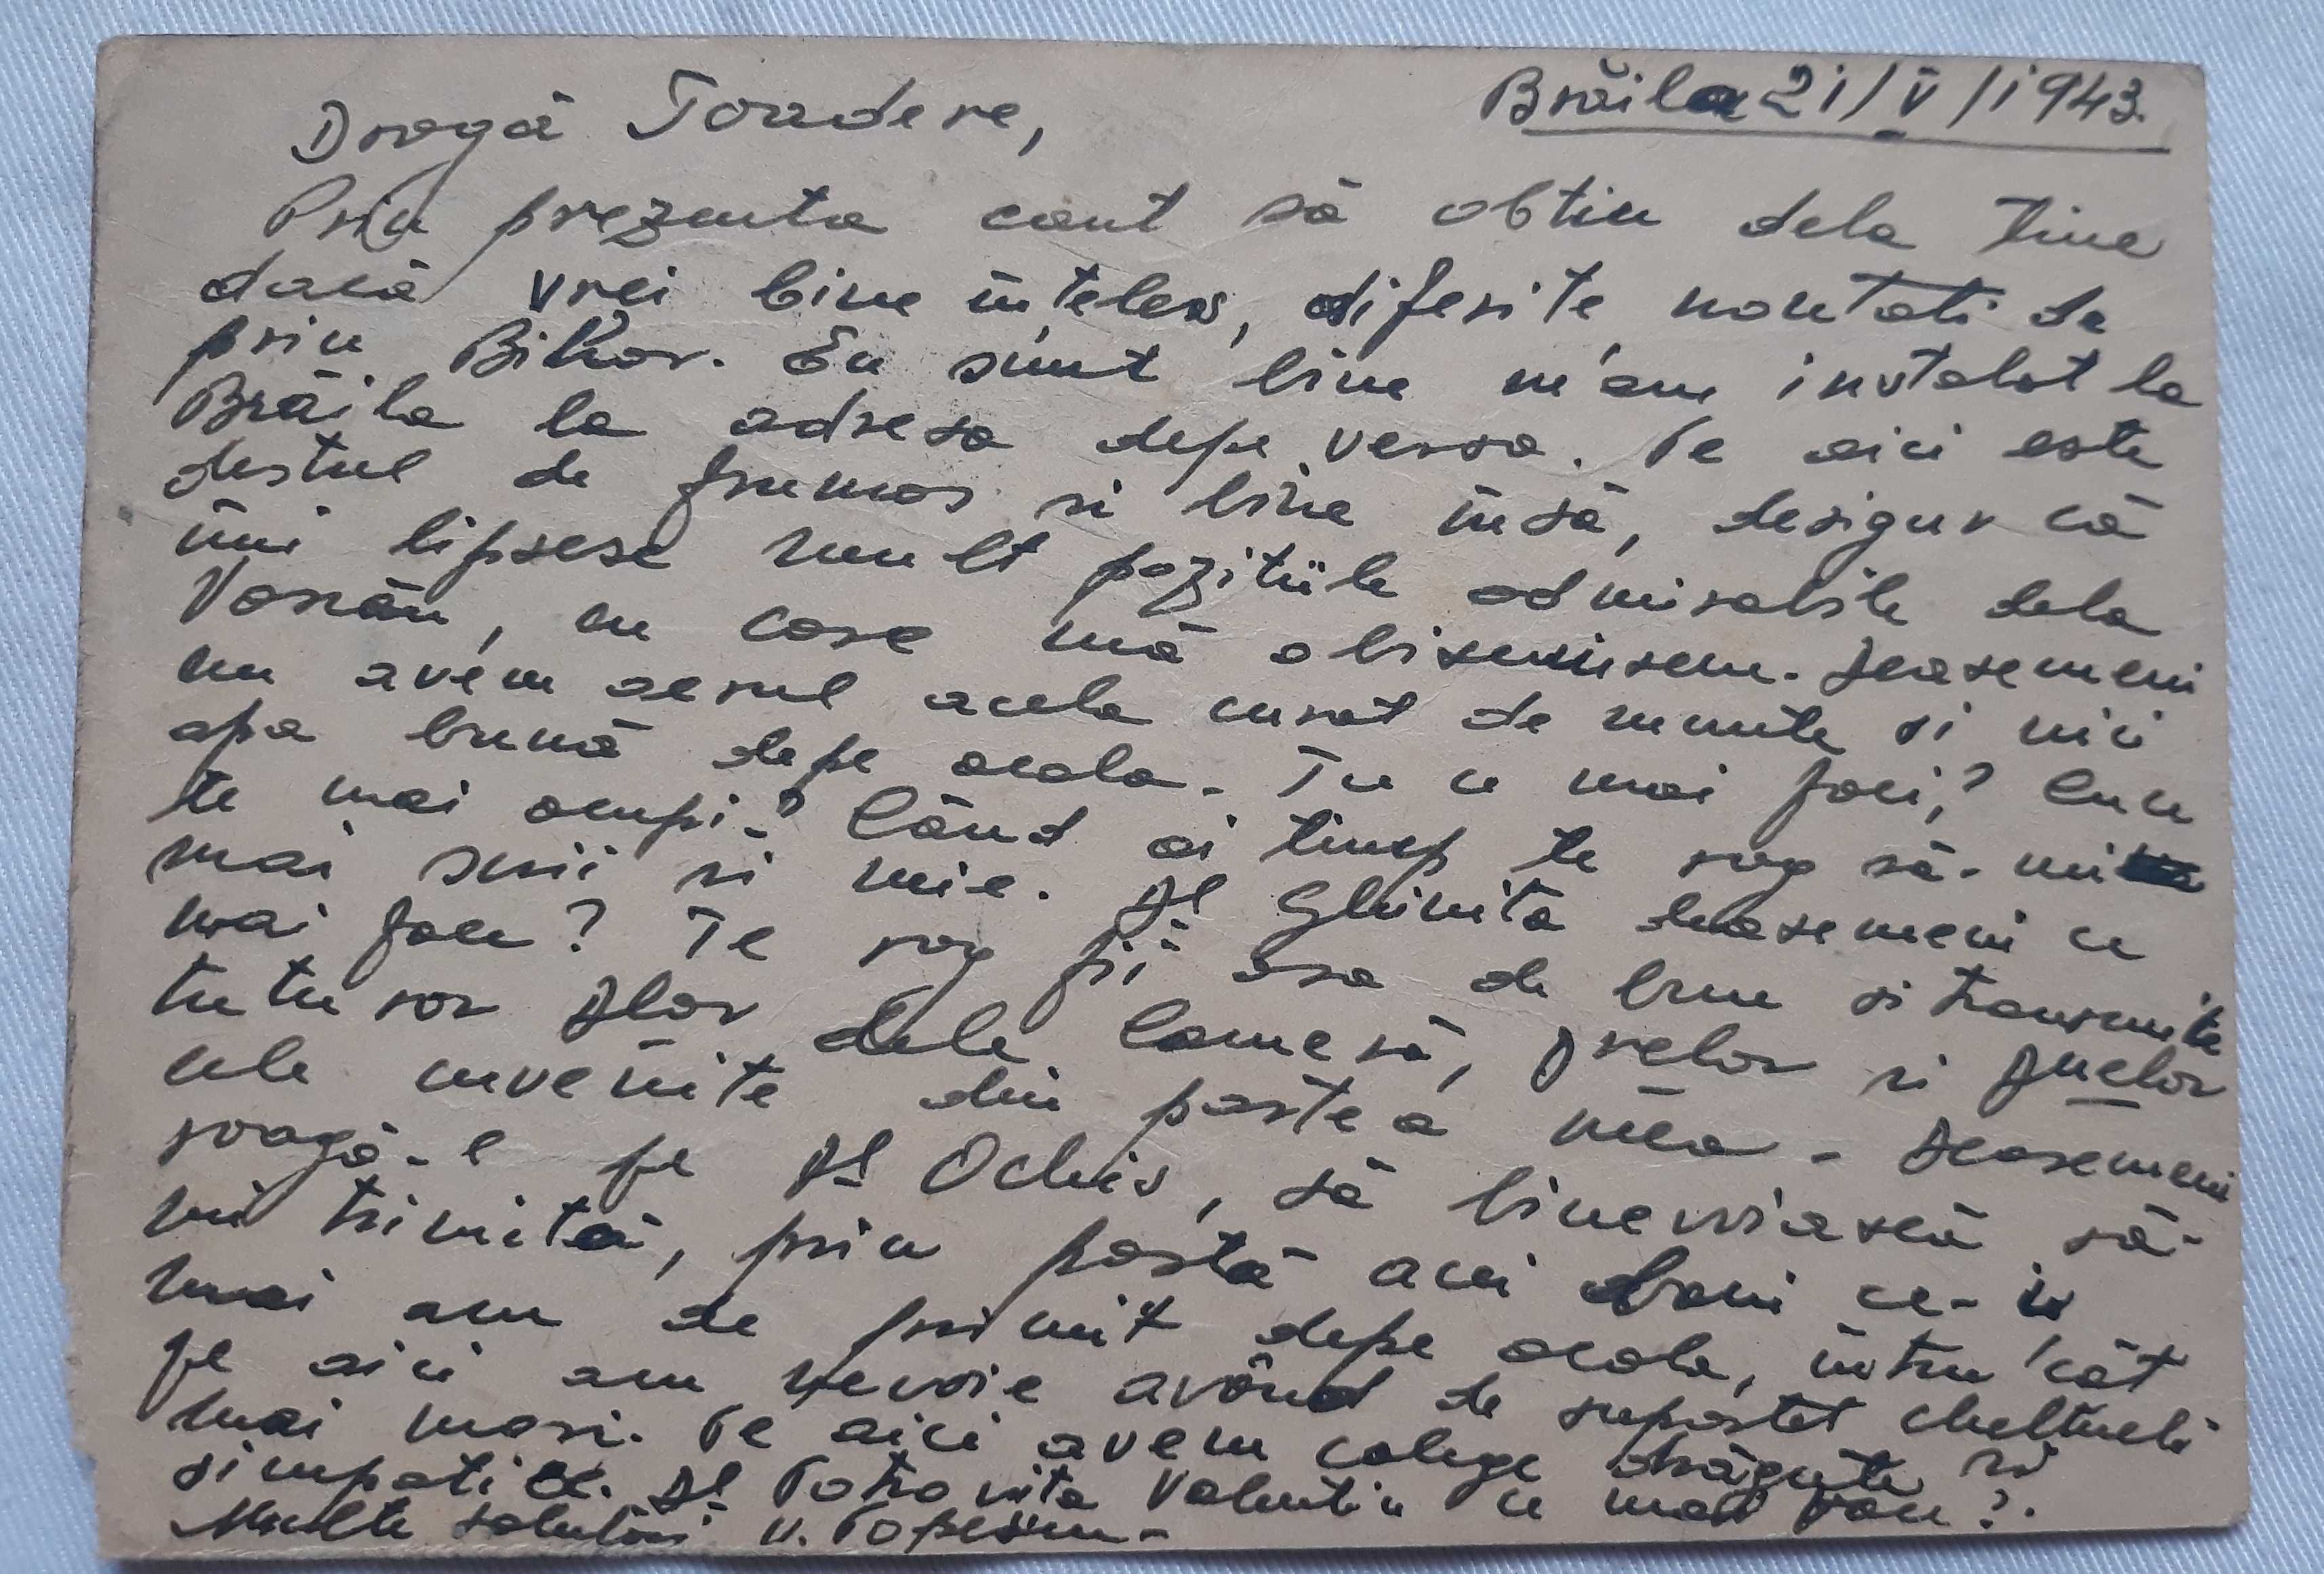 Brăila 21/V/1943.
Dragă Toadere,
Prin prezenta caut să obtin dela tine
dacă vrei bine înteles, diferite noutati de
prin Bihor. Eu sunt bine m'am instalat la
Brăila la adresa depe verso. Pe aici este
destul de frumos si bine însă, desigur că
îmi lipsesc mult pozitiile admirabile dela
Vascău, cu care mă obisnuisem. Deasemeni
nu avem aerul acela curat de munte si nici
apa bună depe acolo. Tu ce mai faci? Cu ce
te mai ocupi? Când ai timp te rog să-mi
mai scrii si mie. Dl Ghimita deasemeni ce
mai face? Te rog fii asa de bun si transmite
tuturor Dlor dela Cameră, Drelor si Dnelor
cele cuvenite din partea mea. Deasemeni
roagă-l pe Dl Ochis, să binevoiască să-
mi trimită, prin postă acei bani ce-i
mai am de primit depe acolo, întru cât
pe aici am nevoie având de suportat cheltueli
mai mari. Pe aici avem colege drăgute si
simpatice. Dl Potrovita Valentin ce mai face?.
Multe salutări V. Popescu-